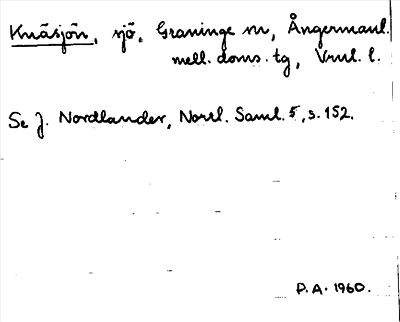 Knäsjön, sjö, Graninge sn, Ångermanl.
mell. doms. tg, Vnl. l.
Se J. Nordlander, Norrl. Saml. 5, s. 152.
P.A. 1960.